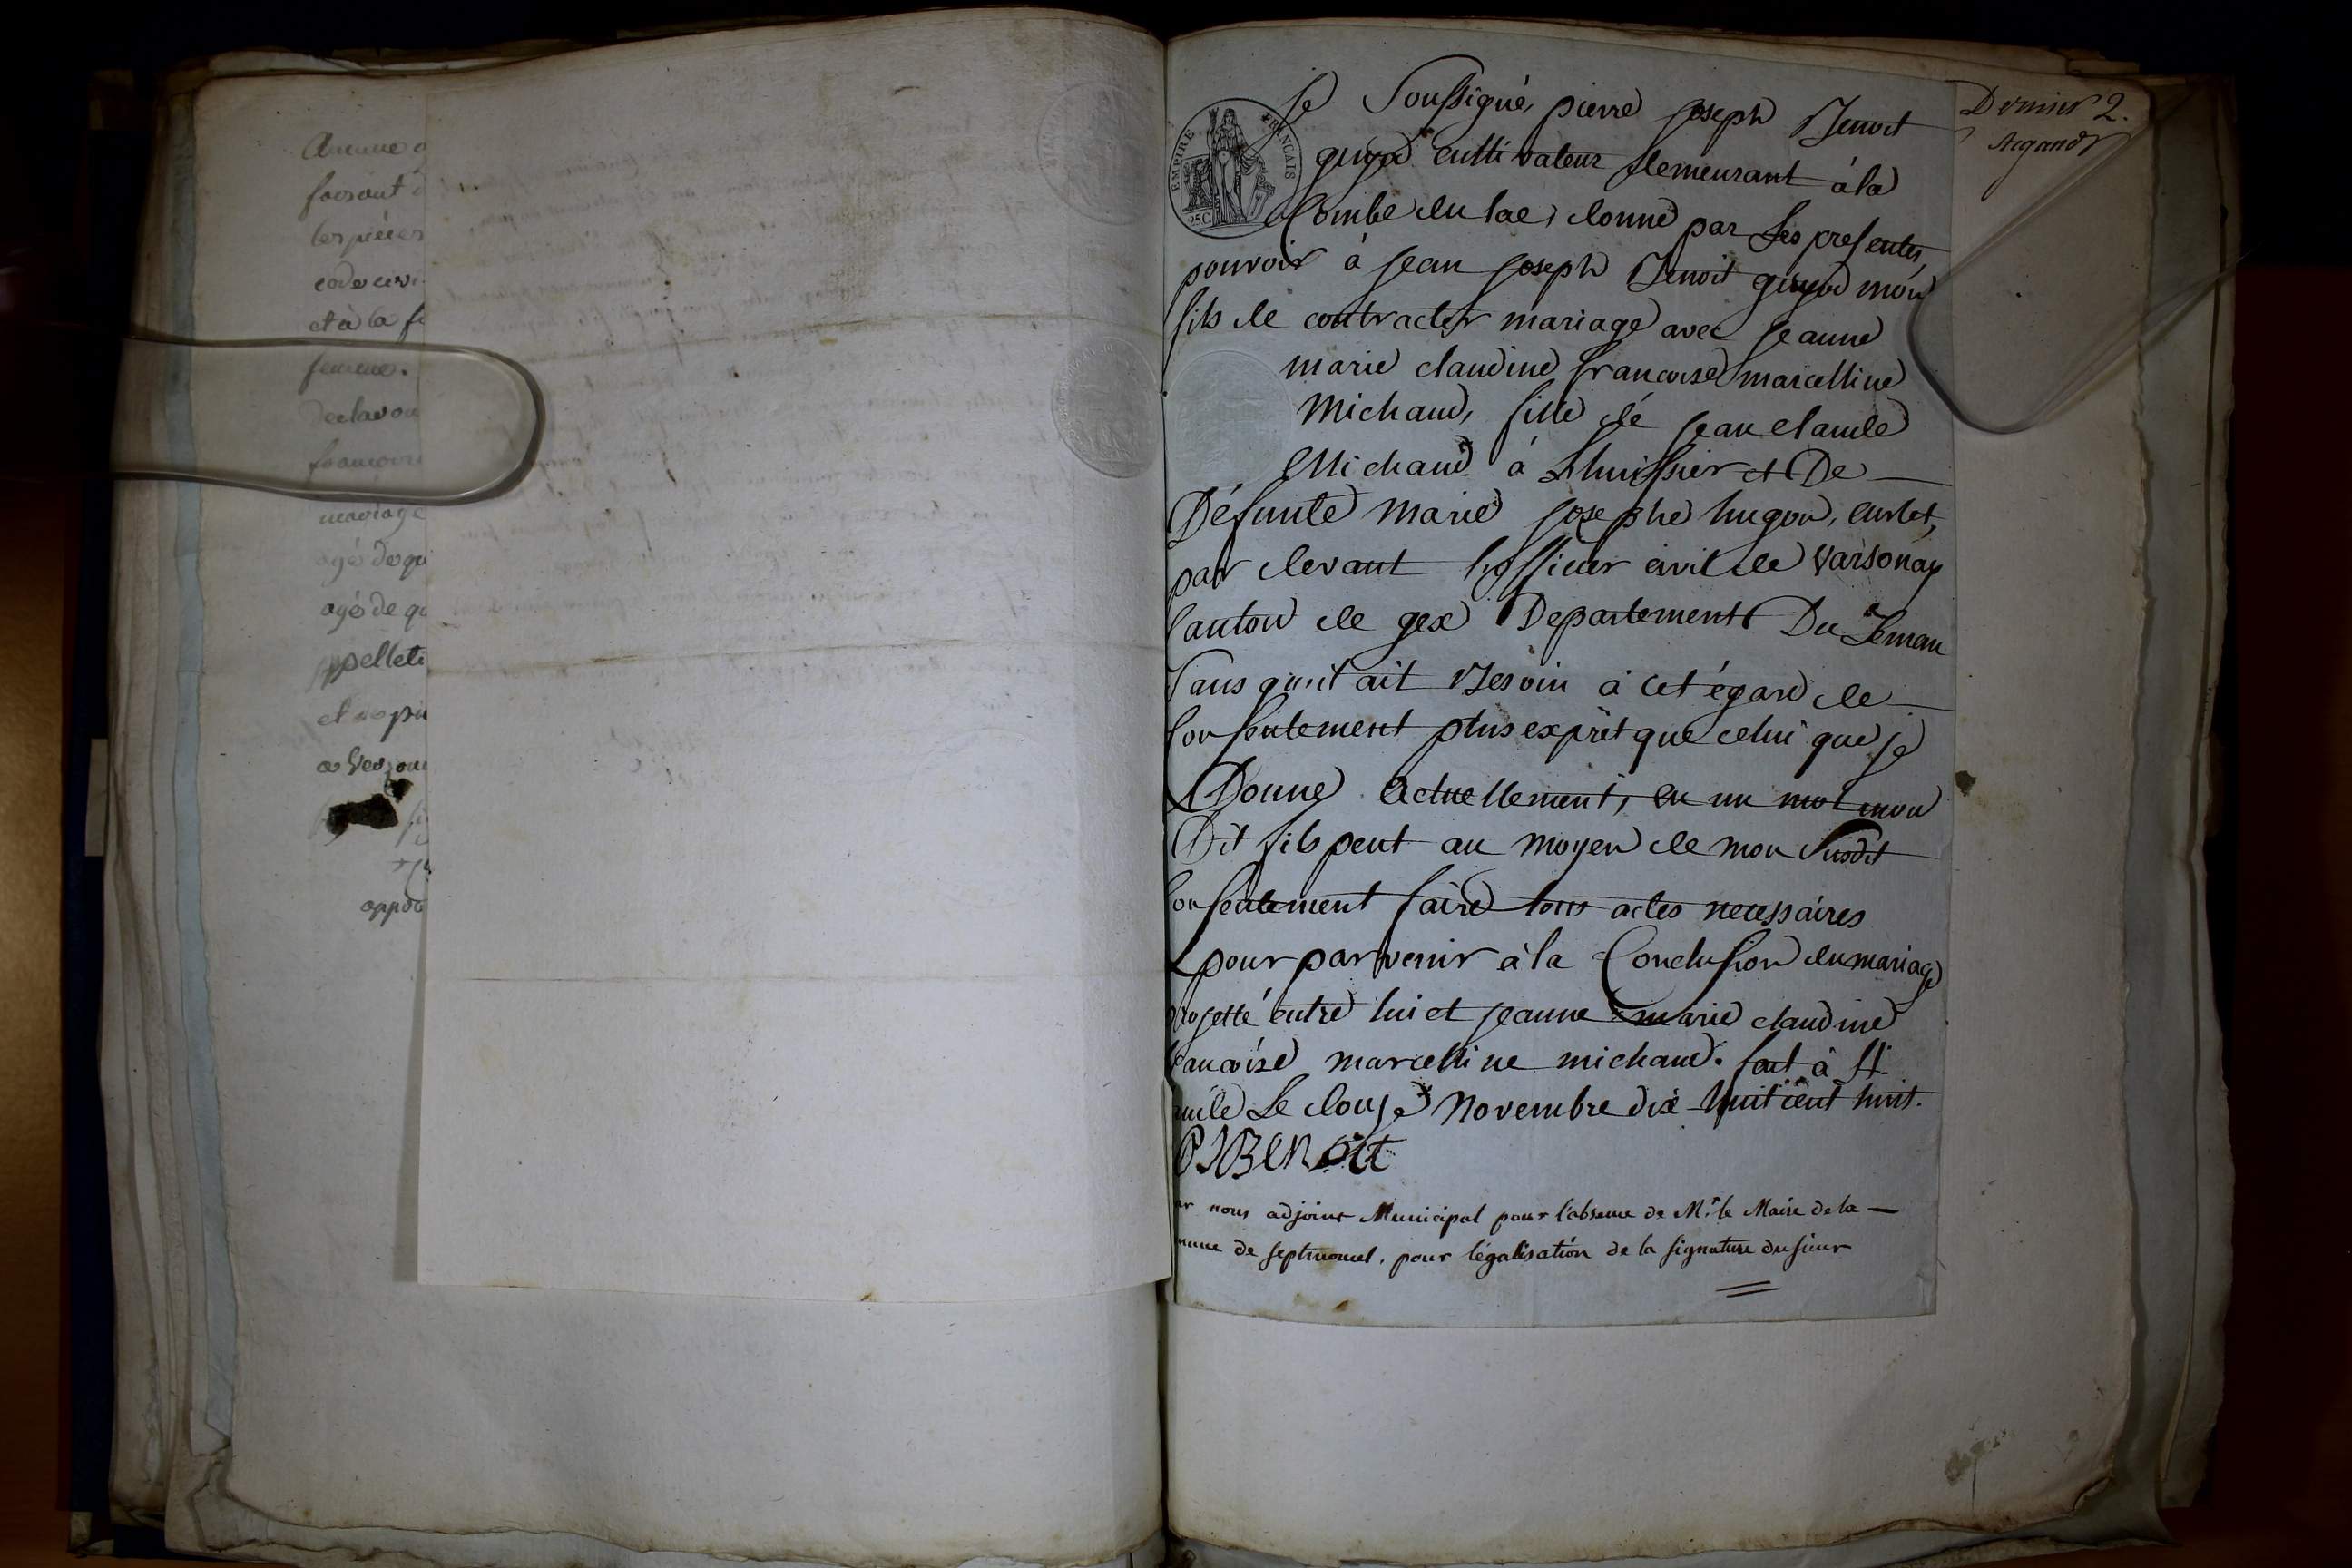 Aucune o
faisant d
les pièces
code civi
et à la fe
femme.
declavon
francois
mariage
agé de qu
agé de qu
ppelleti
et
a Versoni
appos
EMPIRE FRANÇAIS
25 C
je Soussigné, pierre joseph Benoit
guyod cultivateur demeurant à la
Combe du lac, donne par Les presentes,
pouvoir à jean joseph Benoit guyod mon
fils de contracter mariage avec jeanne
marie claudine francoise marcelline
Michaud, fille dé jean claude
Michaud à Lhuissier et De
Défunte marie josephe hugon,
par devant lofficier civil de Varsonay
Canton de gex Departement Du Leman
Sans qu'il ait Besoin à cet égard de
Consentement plus exprèt que celui que je
Donne actuellement, en un mot mon
Dit fils peut au moyen de mon Susdit
Consentement faire tous actes necessaires
pour parvenir à la Conclusion du mariage
projetté entre lui et jeanne marie claudine
francoise marcelline michaud. fait à St
Le douze Novembre dix huit cent huit.
PJBENOIT
ar nous adjoint Municipal pour l'absence de Mr. le Maire de la
mune de septmoncel, pour légalisation de la signature du sieur
Dernier 2.
Argand